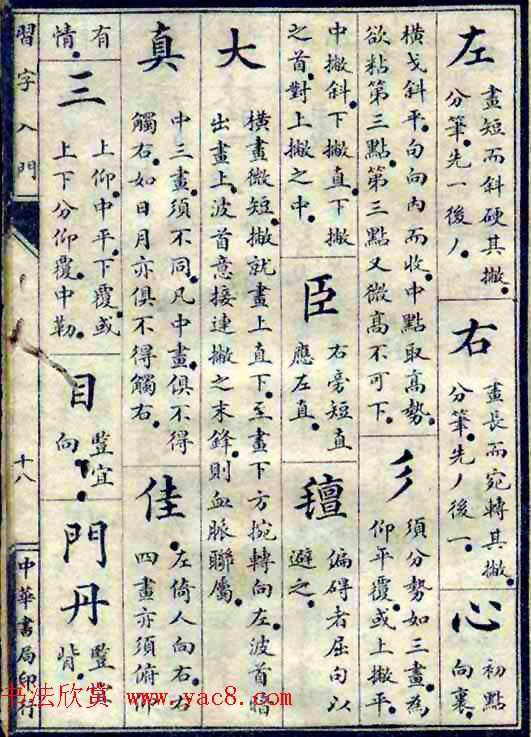 左
畫短而斜硬其撇。
分筆。先一後丿。
右
畫長而宛轉其撇。
分筆。先丿後一。
心
初點
向裏。
橫戈斜平。句向內而收。中點取高勢。
欲粘第三點。第三點又微高不可下。
彡
須分勢如三畫。為
仰平覆。或上撇平。
中撇斜。下撇直。下撇
之首。對上撇之中。
臣
右旁短直
應左直。
偏碍者屈句以
避之。
大
橫畫微短。撇就畫上直下。至畫下方捥轉向左。波首暗
出畫上。波首意接連撇之末鋒。則血脈聯屬。
真
中三畫須不同。凡中畫俱不得
觸右。如日月亦俱不得觸右。
佳
左倚人向右。右
四畫亦須俯仰
有
情。
三
上仰。中平。下覆。或
上下分仰覆。中勒。
目
豎宜
向。
門丹
豎貴
背。
習字入門
十八
中華書局印行
书法欣赏 www.yac8.com